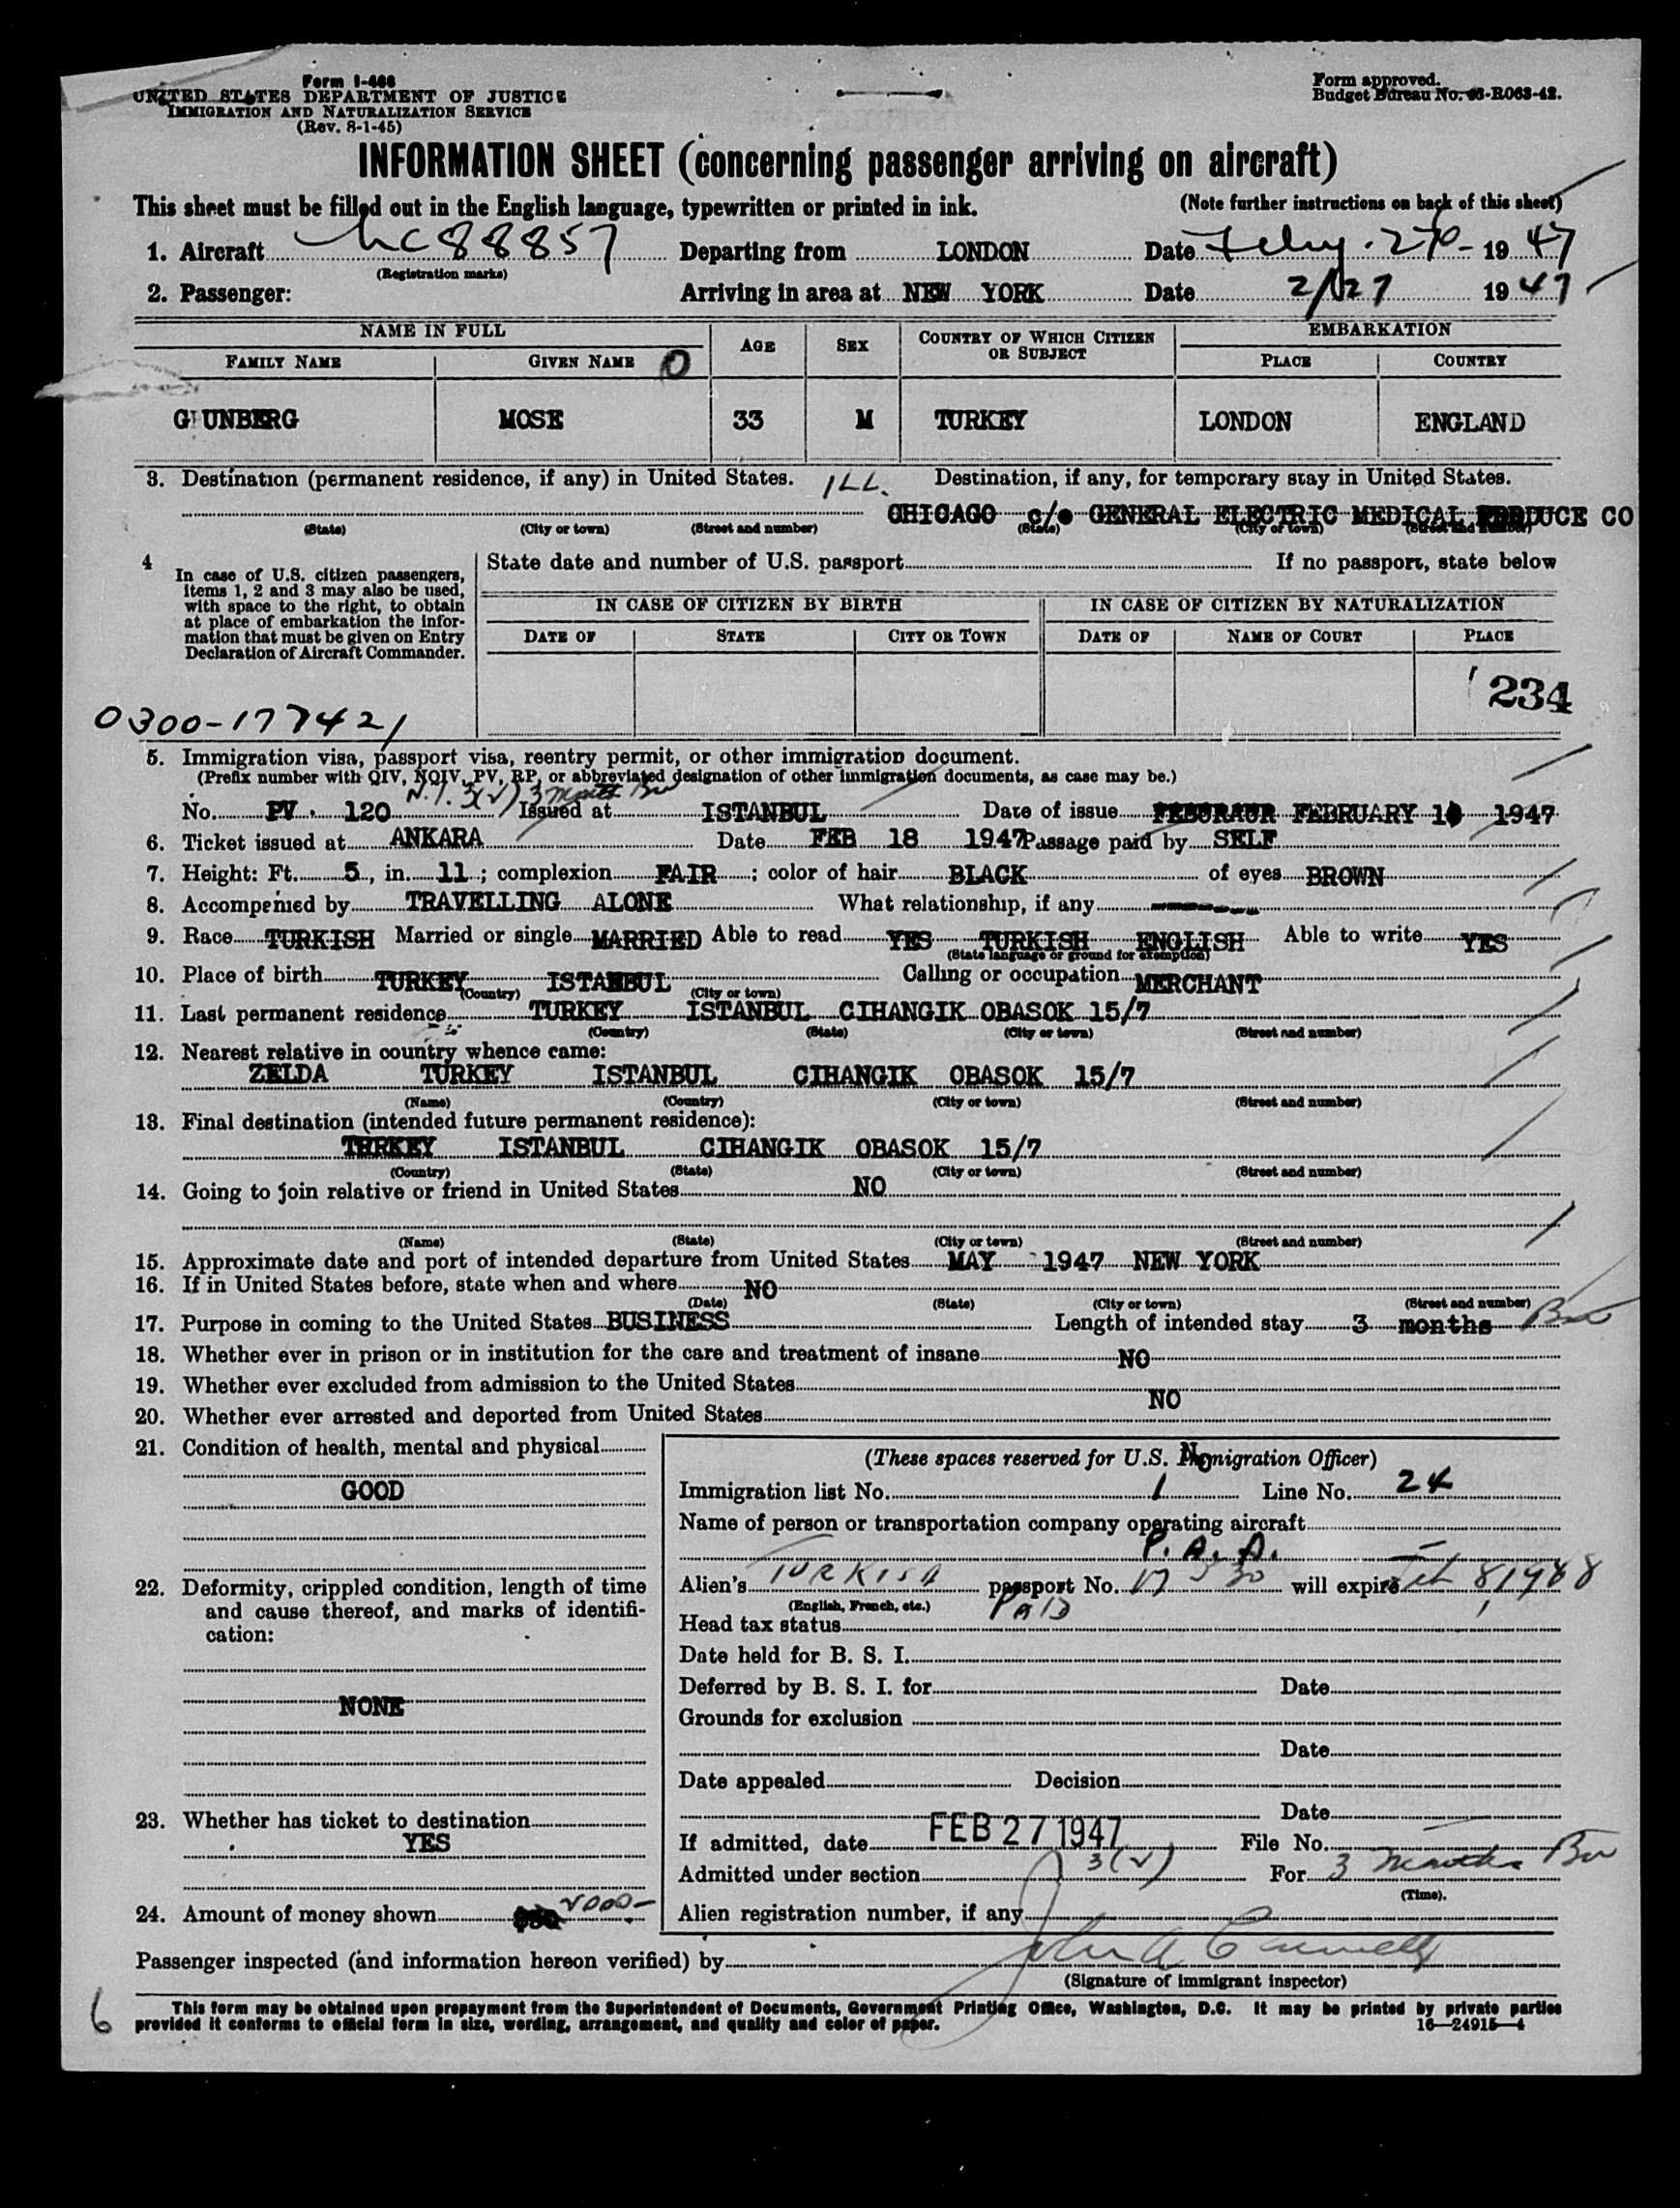 Form I-466
UNITED STATES DEPARTMENT OF JUSTICE
IMMIGRATION AND NATURALIZATION SERVICE
(Rev. 8-1-45)
Form approved.
Budget Bureau No. 43-R063-42.
INFORMATION SHEET (concerning passenger arriving on aircraft)
This sheet must be filled out in the English language, typewritten or printed in ink. (Note further instructions on back of this sheet)
1. Aircraft NC 88857 Departing from LONDON Date 19 47
(Registration marks)
2. Passenger: Arriving in area at NEW YORK Date 2/27 19 47
NAME IN FULL AGE SEX COUNTRY OF WHICH CITIZEN OR SUBJECT EMBARKATION
FAMILY NAME GIVEN NAME O PLACE COUNTRY
G UNBERG MOSE 33 M TURKEY LONDON ENGLAND
3. Destination (permanent residence, if any) in United States. ILL. Destination, if any, for temporary stay in United States.
CHICAGO c/o GENERAL ELECTRIC MEDICAL PRODUCE CO
(State) (City or town) (Street and number) (State) (City or town) (Street and number)
4 In case of U.S. citizen passengers, items 1, 2 and 3 may also be used, with space to the right, to obtain at place of embarkation the information that must be given on Entry Declaration of Aircraft Commander.
State date and number of U.S. passport If no passport, state below
IN CASE OF CITIZEN BY BIRTH IN CASE OF CITIZEN BY NATURALIZATION
DATE OF STATE CITY OR TOWN DATE OF NAME OF COURT PLACE
234
0300-177421
5. Immigration visa, passport visa, reentry permit, or other immigration document.
(Prefix number with QIV, NQIV, PV, RP, or abbreviated designation of other immigration documents, as case may be.)
3(2) 3 months
No. PV. 120 Issued at ISTANBUL Date of issue FEBRUARY 1947
6. Ticket issued at ANKARA Date FEB 18 1947 Passage paid by SELF
7. Height: Ft. 5, in. 11; complexion FAIR; color of hair BLACK of eyes BROWN
8. Accompanied by TRAVELLING ALONE What relationship, if any
9. Race TURKISH Married or single MARRIED Able to read YES TURKISH ENGLISH Able to write YES
(State language or ground for exemption)
10. Place of birth TURKEY ISTANBUL Calling or occupation MERCHANT
(Country) (City or town)
11. Last permanent residence TURKEY ISTANBUL CIHANGIK OBASOK 15/7
(Country) (State) (City or town) (Street and number)
12. Nearest relative in country whence came:
ZELDA TURKEY ISTANBUL CIHANGIK OBASOK 15/7
(Name) (Country) (City or town) (Street and number)
13. Final destination (intended future permanent residence):
TURKEY ISTANBUL CIHANGIK OBASOK 15/7
(Country) (State) (City or town) (Street and number)
14. Going to join relative or friend in United States NO
(Name) (State) (City or town) (Street and number)
15. Approximate date and port of intended departure from United States MAY 1947 NEW YORK
16. If in United States before, state when and where NO
(Date) (State) (City or town) (Street and number)
17. Purpose in coming to the United States BUSINESS Length of intended stay 3 months
18. Whether ever in prison or in institution for the care and treatment of insane NO
19. Whether ever excluded from admission to the United States
NO
20. Whether ever arrested and deported from United States
No
21. Condition of health, mental and physical
GOOD
22. Deformity, crippled condition, length of time and cause thereof, and marks of identification:
NONE
23. Whether has ticket to destination
YES
24. Amount of money shown 2000-
(These spaces reserved for U.S. Immigration Officer)
Immigration list No. 1 Line No. 24
Name of person or transportation company operating aircraft
P. A. A.
Alien's TURKISH passport No. will expire Feb 8, 1948
(English, French, etc.)
Head tax status PAID
Date held for B. S. I.
Deferred by B. S. I. for Date
Grounds for exclusion
Date
Date appealed Decision
Date
If admitted, date FEB 27 1947 File No.
Admitted under section 3(2) For 3 months
(Time).
Alien registration number, if any
Passenger inspected (and information hereon verified) by John A
(Signature of immigrant inspector)
This form may be obtained upon prepayment from the Superintendent of Documents, Government Printing Office, Washington, D.C. It may be printed by private parties
provided it conforms to official form in size, wording, arrangement, and quality and color of paper.
16—24915-4
6